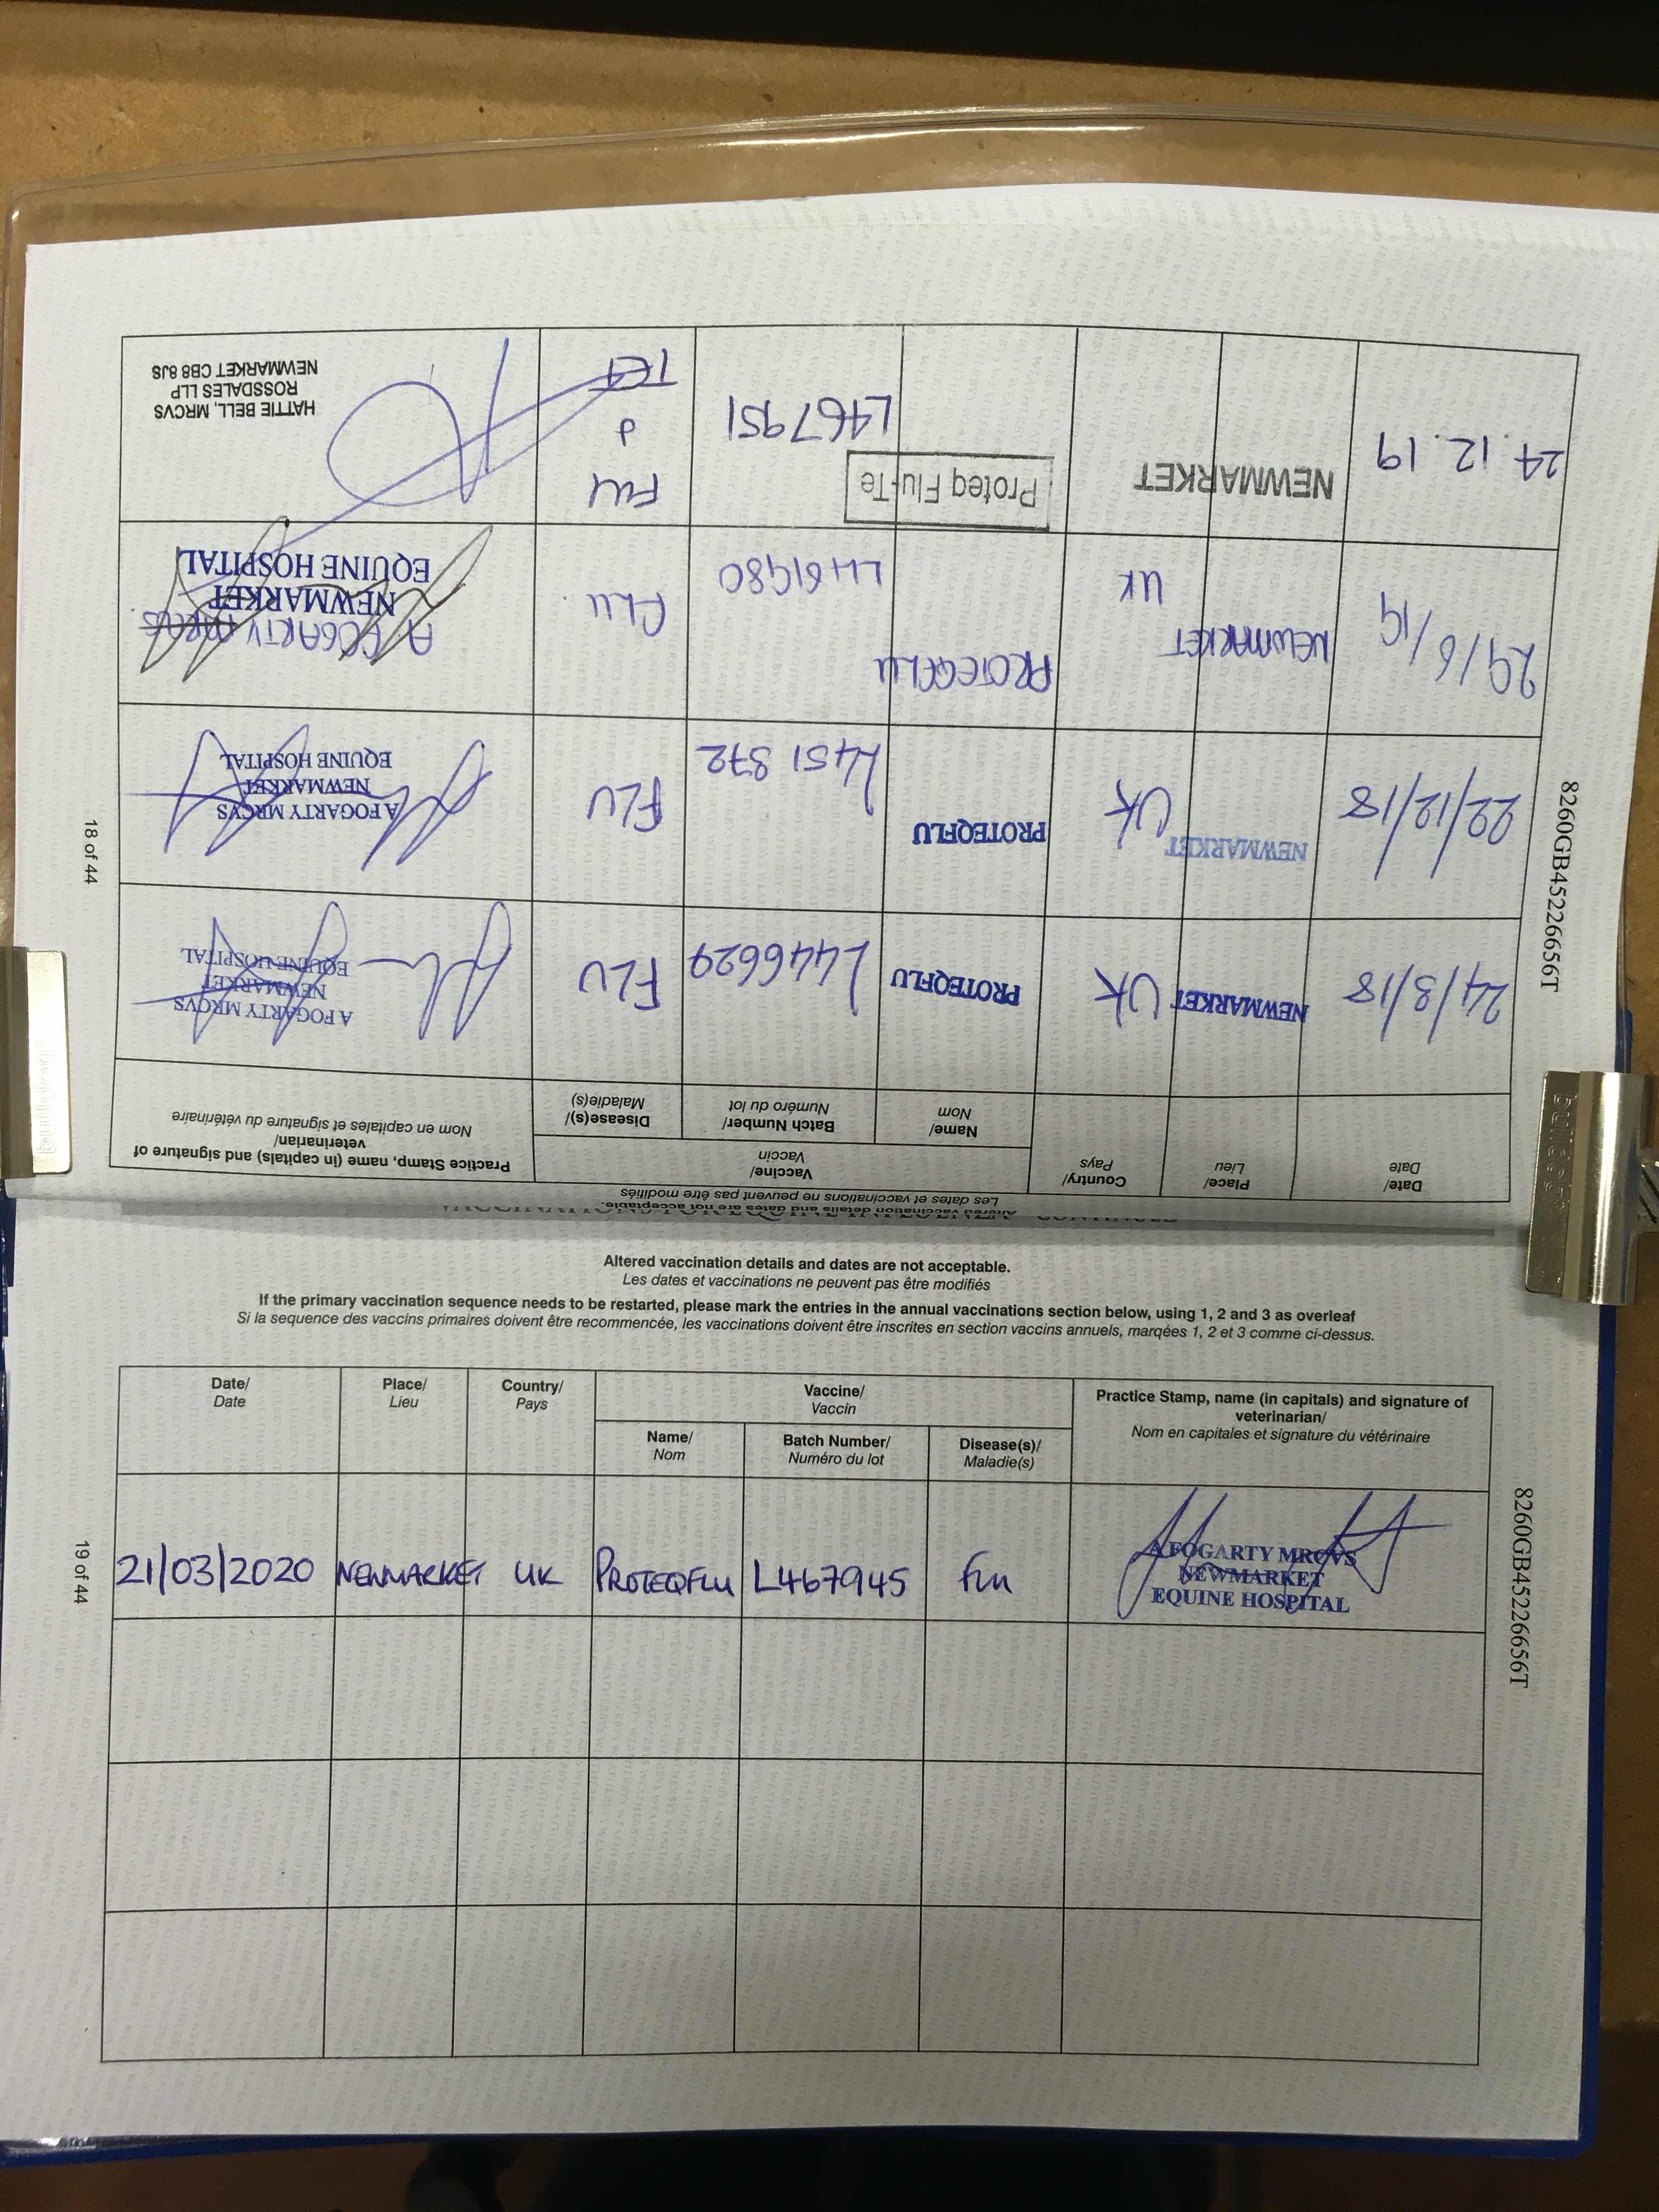 VACCINATIONS FOR EQUINE INFLUENZA - CONTINUED
Altered vaccination details and dates are not acceptable.
Les dates et vaccinations ne peuvent pas être modifiés
Date/
Date
Place/
Lieu
Country/
Pays
Vaccine/
Vaccin
Name/
Nom
Batch Number/
Numéro du lot
Disease(s)/
Maladie(s)
Practice Stamp, name (in capitals) and signature of
veterinarian/
Nom en capitales et signature du vétérinaire
24/3/18 NEWMARKET UK PROTEQFLU L446629 FLU
A FOGARTY MRCVS
NEWMARKET
EQUINE HOSPITAL
22/12/18 NEWMARKET UK PROTEQFLU L451872 FLU
A FOGARTY MRCVS
NEWMARKET
EQUINE HOSPITAL
29/6/19 NEWMARKET UK PROTEQFLU L461980 FLU
A FOGARTY MRCVS
NEWMARKET
EQUINE HOSPITAL
24.12.19 NEWMARKET Proteq Flu-Te L467951 FLU
&
TET
HATTIE BELL, MRCVS
ROSSDALES LLP
NEWMARKET CB8 8JS
8260GB45226656T
18 of 44
Altered vaccination details and dates are not acceptable.
Les dates et vaccinations ne peuvent pas être modifiés
If the primary vaccination sequence needs to be restarted, please mark the entries in the annual vaccinations section below, using 1, 2 and 3 as overleaf
Si la sequence des vaccins primaires doivent être recommencée, les vaccinations doivent être inscrites en section vaccins annuels, marqées 1, 2 et 3 comme ci-dessus.
Date/
Date
Place/
Lieu
Country/
Pays
Vaccine/
Vaccin
Name/
Nom
Batch Number/
Numéro du lot
Disease(s)/
Maladie(s)
Practice Stamp, name (in capitals) and signature of
veterinarian/
Nom en capitales et signature du vétérinaire
21/03/2020 NEWMARKET UK PROTEQFLU L467945 Flu
A FOGARTY MRCVS
NEWMARKET
EQUINE HOSPITAL
8260GB45226656T
19 of 44